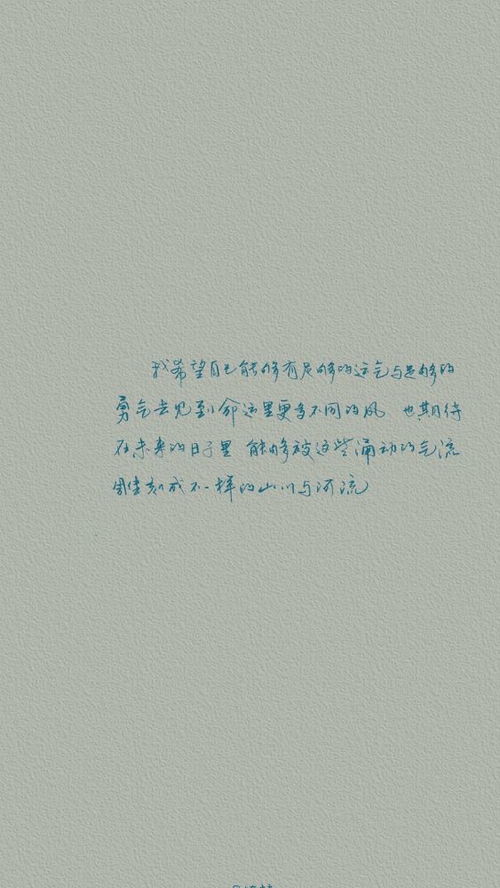 我希望自己能够有足够的运气与足够的
勇气去见到命运里更多不同的风 也期待
在未来的日子里 能够被这些涌动的气流
雕刻成不一样的山川与河流